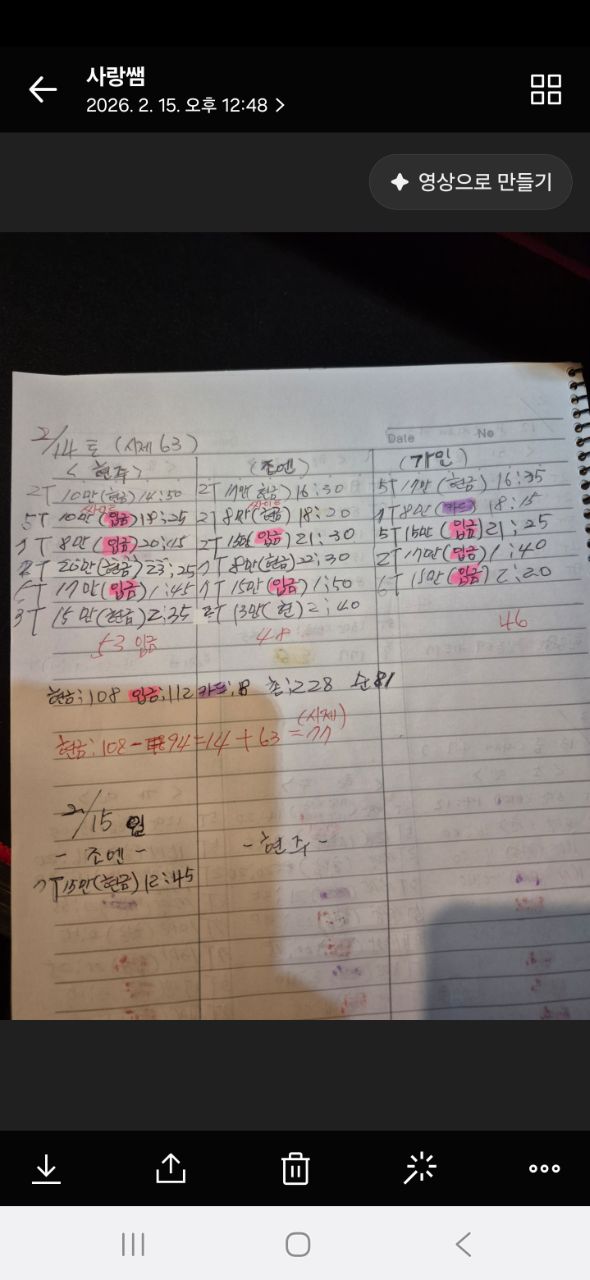 사랑쌤
2026. 2. 15. 오후 12:48 >
영상으로 만들기
Date No
2/14 토 (시제 63)
<현주> (조엔) (가인)
2T 10만(현금)14:50 2T 17만(현금)16:30 5T 17만(현금)16:35
5T 10만(입금)18:25 2T 8만(현금)18:20 1T 8만(카드)18:15
1T 8만(입금)20:15 2T 15만(입금)21:30 5T 15만(입금)21:25
20만(현금)23:25 1T 8만(현금)22:30 2T 17만(입금)1:40
17만(입금)1:45 1T 15만(입금)1:50 6T 15만(입금)2:20
3T 15만(현금)2:35 13만(현)2:40
53 입금 48 46
현금:108 입금:112 카드:8 총:228 순81
(시제)
현금:108-94=14+63=77
2/15 일
-조엔- -현주-
1T 15만(현금)12:45